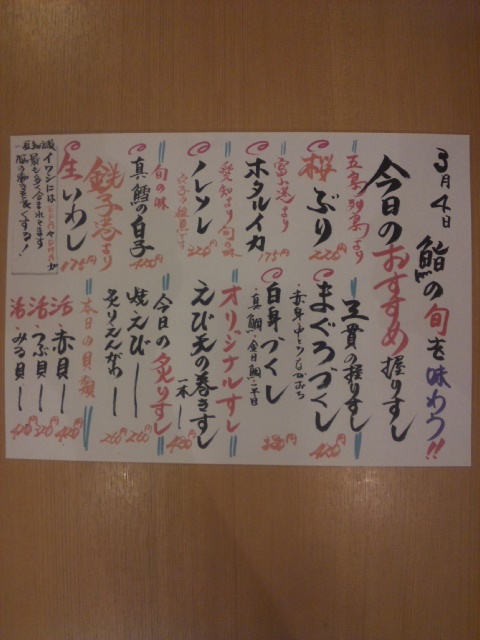 3月4日 鮨の旬を味わう!!
今日のおすすめ握りすし
五島列島より
桜ぶり 220円
富山湾より
ホタルイカ 175円
愛知より旬の味
ノレソレ 220円
穴子の稚魚です
旬の味
真鱈の白子 420円
銚子港より
生いわし 175円
イワシにはEPAやDHAが
最も多く含まれてます
脳の働きを良くする!
三貫の握りすし
まぐろづくし 420円
赤身・中とろ
白身づくし 320円
真鯛・金目鯛・平目
オリジナルすし
えび天の巻きすし
一本 480円
今日の炙りすし
焼えび 260円
炙りえんがわ 260円
本日の貝類
活・赤貝 420円
活・つぶ貝 320円
活・みる貝 420円